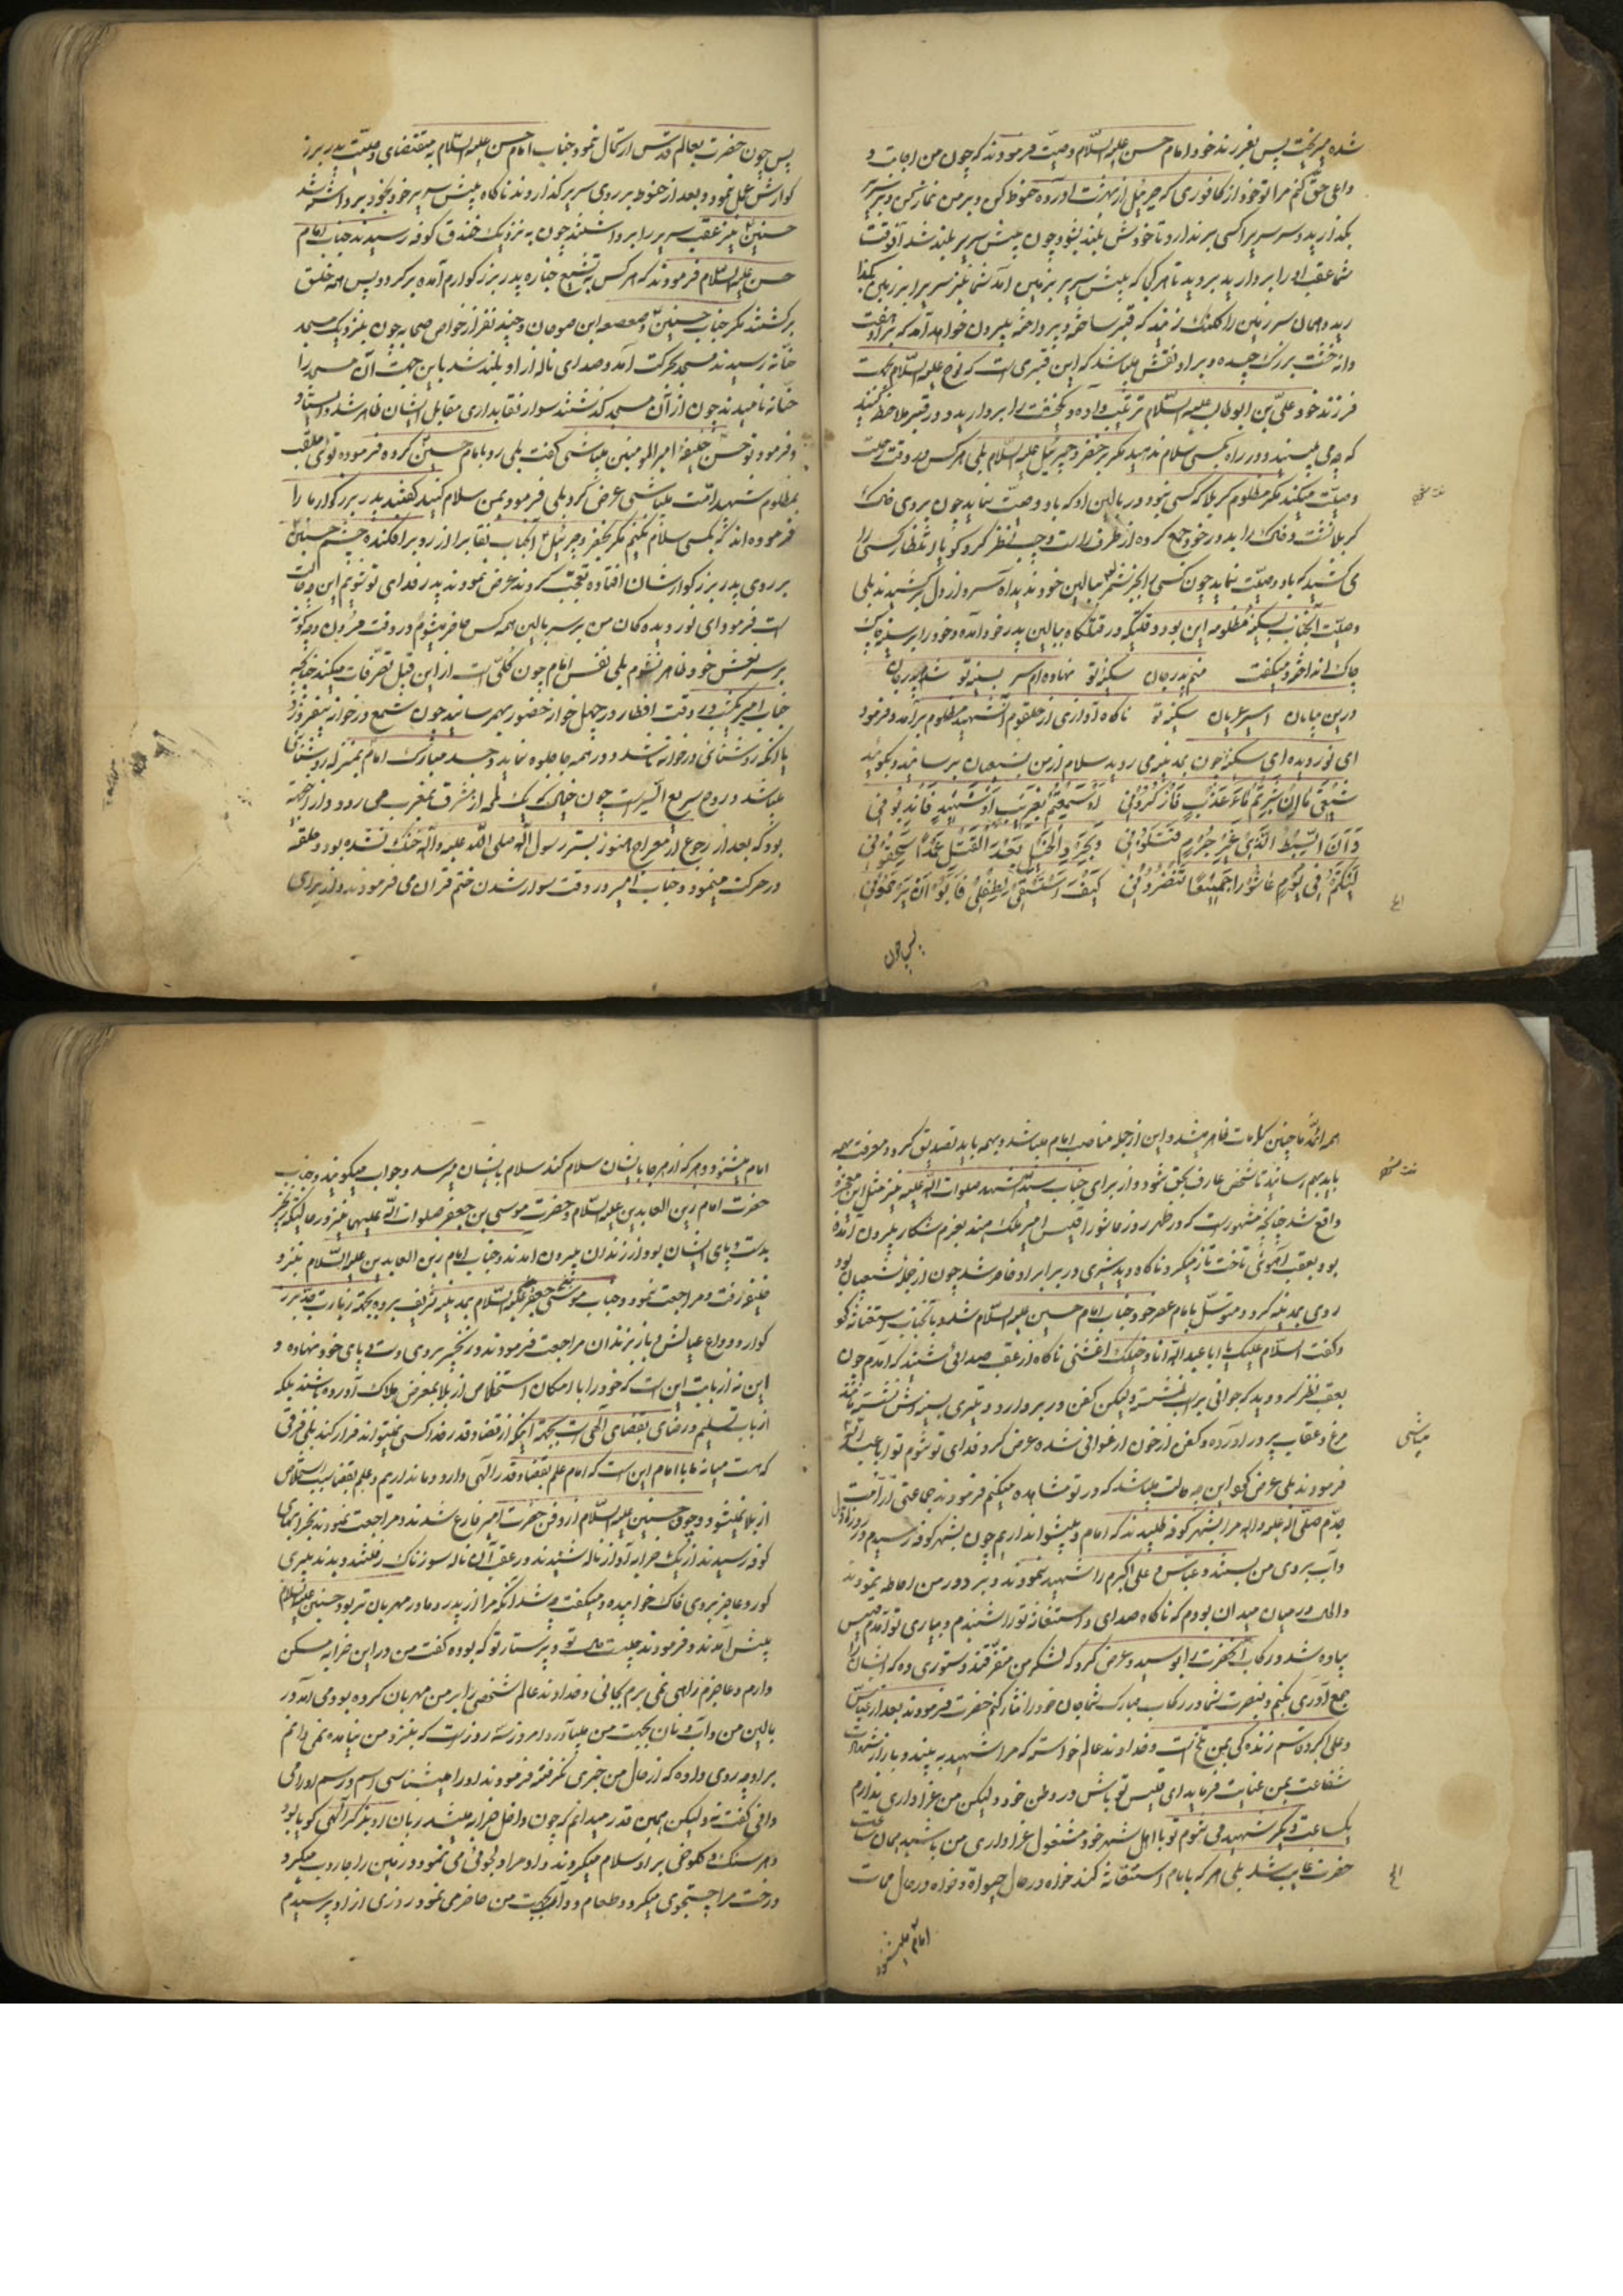 شده میریخت پس بفرزند خود امام حسن علیه السّلام وصیّت فرمودند که چون من اجابت و
داعی حق کنم مرا تو خود از کافوری که جبرئیل از بهشت آورده حنوط کن و بر من نماز کن و بر سریر
بگذارید و سر سریر را کسی برندارد تا خودش بلند شود چون پیش سریر بلند شد آنوقت
شما عقب او را بردارید بروید تا هر کجا که پیش سریر بزمین آمد شما نیز سریر را بر زمین بگذا
رید و همان سرزمین را کلنک زنید که قبر ساخته و پرداخته بیرون خواهد آمد که بر او هفت
دانه خشت بزرک چیده و بر او نقش میباشد که این قبری است که نوح علیه السّلام بجهت
فرزند خود علیّ بن ابوطالب علیه السّلام ترتیب داده و یکخشت را بردارید و در قبر ملاحظه کنید
که چه می بینید و در راه بکسی سلام ندهید مگر بر خضر و جبرئیل علیه السّلام بلی هر کس در وقت رحلت
وصیّت میکند مگر مظلوم کربلا که کسی نبود در بالین او که باو وصیّت نماید چون بروی خاک
کربلا نشست و خاک را بدور خود جمع کرده از طرف راست و چپ نظر کرد گویا انتظار کسی را
می کشید که باو وصیّت نماید چون کسی را بجز شمر ببالین خود ندید آه سرد از دل برکشید بلی
وصیّت آنجناب بسکینه مظلومه این بود وقتیکه در قتلگاه ببالین پدر خود آمده و خود را بر سینه چاک
چاک انداخته و میگفت منم پدر جان سکینه تو نهاده ام سر بسینه تو شده پدر جان
درین بیابان اسیر عریان سکینه تو ناگاه آوازی از حلقوم آن شهید مظلوم برآمد و فرمود
ای نور دیده ای سکینه چون بمدینه می روید سلام از من بشیعیان برسانید و بگوئید
شیعتی ما ان شربتم ماء عذب فاذکرونی او سمعتم بغریب او شهید فاندبونی
و انا السبط الذی من غیر جرم قتلونی و بجرد الخیل بعد القتل عمدا سحقونی
لیتکم فی یوم عاشورا جمیعا تنظرونی کیف استسقی لطفلی فابوا ان یرحمونی
پس چون
پس چون حضرت بعالم قدس ارتحال نمود جناب امام حسن علیه السّلام بمقتضای وصیّت پدر بزر
گوارش عمل نمود و بعد از حنوط بر روی سریر گذاردند ناگاه پیش سریر خود بخود برداشته شد
حسنین نیز عقب سریر را برداشتند چون به نزدیک خندق کوفه رسیدند جناب امام
حسن علیه السلام فرمودند که هر کس به تشییع جنازه پدر بزرگوارم آمده برگردد پس همه خلق
برگشتند مگر جناب حسنین و صعصعه ابن صوحان و چند نفر از خواص صحابه چون بنزدیک مسجد
حنّانه رسیدند مسجد بحرکت آمد و صدای ناله از او بلند شد باین جهت آن مسجد را
حنّانه نامیدند چون از آن مسجد گذشتند سوار نقابداری مقابل ایشان ظاهر شد و ایستاد
و فرمود تو حسن خلیفهٔ امیر المومنین میباشی گفت بلی رو بامام حسین کرده فرمود توئی ملقب
بمظلوم شهید امّت میباشی عرض کرد بلی فرمود بمن سلام کنید گفتند پدر بزرگوار ما را
فرموده اند که بکسی سلام نکنیم مگر بخضر و جبرئیل آنجناب نقاب را از رو برافکنده چشم حسنین
بر روی پدر بزرگوارشان افتاده تعجّب کردند عرض نمودند پدر فدای تو شویم این چه حالت
است فرمود ای نور دیده گان من بر سر بالین همه کس حاضر میشوم در وقت مردن و چگونه
بر سر نعش خود ظاهر نشوم بلی نفس امام چون کلّی است از این قبیل تصرّفات میکند چنانچه
جناب امیر یکشب در وقت افطار در چهل خوان حضور بهم رسانید چون شمع در خوانه بیفروزد
با آنکه روشنائی در خوانه باشد و در همه جا جلوه نماید و جسد مبارک امام بمنزله روشنائی
میباشد و روح سریع السّیر است چون خیال که بیک طرفه از مشرق بمغرب می رود و از اینجهة
بود که بعد از رجوع از معراج هنوز بستر رسول الله صلی الله علیه و آله خنک نشده بود و حلقه
در حرکت مینمود و جناب امیر در وقت سوار شدن ختم قرآن می فرمودند و از برای
همه ائمّه ما چنین کرامات ظاهر میشد و این از جمله مناصب امام میباشد و بهمه باید تصدیق کرد و معرفت بهمه
باید بهم رسانید تا شخص عارف بحق شود و از برای جناب سیّد الشهدا صلوات الله علیه نیز مثل این معجزه
واقع شد چنانچه مشهور است که در ظهر روز عاشورا قیس امیر ملک هند بعزم شکار بیرون آمده
بود بعقب آهوئی تاخت تاز میکرد ناگاه دید شیری در برابر او ظاهر شد چون از جمله شیعیان بود
روی بمدینه کرد و متوسّل بامام عصر خود جناب امام حسین علیه السّلام شد و بآنجناب استغاثه کرد
و گفت السّلام علیک یا ابا عبد الله انا دخیلک اغثنی ناگاه از عقب صدائی شنید که آمدم چون
بعقب نظر کرد دید که جوانی بر اسب نشسته ولیکن کفن در بر دارد و تیری بسینه اش نشسته مانند
مرغ و عقاب پر در آورده و کفن از خون ارغوانی شده عرض کرد فدای تو شوم تو ابا عبد الله
فرمودند بلی عرض کرد این چه حالت میباشد که در تو مشاهده میکنم فرمودند جماعتی از امّت
جدّم صلّی الله علیه و اله مرا بشهر کوفه طلبیدند که امام و پیشوا نداریم چون بشهر کوفه رسیدم در روز اول
و آب بروی من بستند و عبّاس و علی اکبرم را شهید نمودند و بر دور من احاطه نمودند
و الحال در میان میدان بودم که ناگاه صدای استغاثه تو را شنیدم و بیاری تو آمدم قیس
پیاده شد و رکاب آنحضرت را بوسید و عرض کرد که لشکر من متفرّقند دستوری ده که ایشان را
جمع آوری بکنم و بنصرت شما در رکاب مبارک شما جان خود را نثار کنم حضرت فرمودند بعد از عباس
و علی اکبر و قاسم زنده گی بمن تلخ است و خداوند عالم خواسته که مرا شهید به بیند و باز از شهادت
شفاعت بمن عنایت فرماید ای قیس تو باش در وطن خود ولیکن من عزاداری ندارم
یکساعت دیگر شهید می شوم تو با اهل شهر خود مشغول عزاداری من باشید همان ساعت
حضرت غایب شد بلی هر که بامام استغاثه کند خواه در حال حیوة و خواه در حال ممات
امام میشنود
میباشی
امام میشنود و هر که از هر جا بایشان سلام کند سلام بایشان میرسد و جواب میگویند و جناب
حضرت امام زین العابدین علیه السّلام و حضرت موسی بن جعفر صلوات الله علیهما نیز در حالیکه زنجیر
بدست و پای ایشان بود از زندان بیرون آمدند و جناب امام زین العابدین علیه السّلام بنزد
خلیفه رفت و مراجعت نمود و جناب موسی بن جعفر علیه السّلام بمدینه تشریف برده بجهة زیارت جدّ بزر
گوار و وداع عیالش و باز بزندان مراجعت فرمودند و زنجیر بروی دست و پای خود نهاده و
این نه از بابت این است که خود را با امکان استخلاص از بلا بمعرض هلاک آورده باشند بلکه
از باب تسلیم و رضای بقضای آلهی است بجهة اینکه از قضا و قدر خدا کسی نمیتواند فرار کند بلی فرقی
که هست میانه ما با امام این است که امام علم بقضا و قدر آلهی دارد و ما نداریم و علم بقضا سبب استخلاص
از بلا نمیشود و چون حسنین علیه السّلام از دفن حضرت امیر فارغ شدند و مراجعت نمودند بخرابهای
کوفه رسیدند از یک خرابه آواز ناله شنیدند در عقب آن ناله سوزناک رفتند دیدند پیری
کور و عاجز بروی خاک خوابیده و میگفت چه شد آنکه مرا از پدر و مادر مهربان تر بود حسنین علیه السلام
پیش آمدند و فرمودند چیست حال تو و پرستار تو که بوده گفت من در این خرابه مسکن
دارم و عاجزم راهی نمی برم بجائی و خداوند عالم شخصی را بر من مهربان کرده بود می آمد در
بالین من و آب و نان بجهت من میآورد امروز سه روز است که بنزد من نیامده نمی دانم
بر او چه روی داده که از حال من خبری نگرفته فرمودند او را میشناسی اسم و رسم او را می
دانی گفت نه ولیکن همین قدر میدانم که چون داخل خرابه میشد زبان او بذکر آلهی گویا بود
و هر سنگ و کلوخی بر او سلام میکردند و او مرا دلجوئی می نمود و زمین را جاروب میکرد
و رخت مرا جستجوی میکرد و طعام و آب بجهت من حاضر می نمود روزی از او پرسیدم